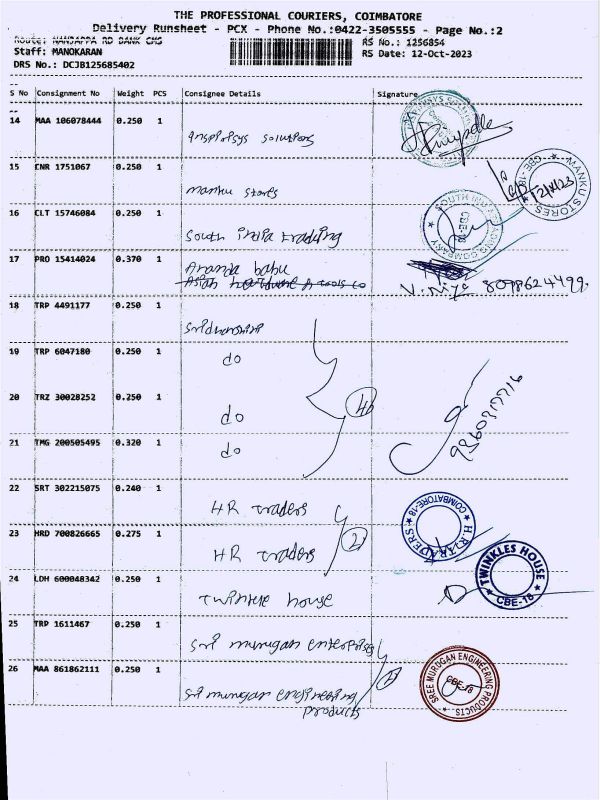 THE PROFESSIONAL COURIERS, COIMBATORE
Delivery Runsheet - PCX - Phone No.:0422-3505555 - Page No.:2
Route: NANJAPPA RD BANK CMS
RS No.: 1256854
Staff: MANOKARAN
RS Date: 12-Oct-2023
DRS No.: DCJB125685402
S No Consignment No Weight PCS Consignee Details Signature
14 MAA 106078444 0.250 1
solutions
15 CNR 1751067 0.250 1
manku stores
CBE-18 MANKU STORES
16 CLT 15746084 0.250 1
South india trading
SOUTH INDIA TRADING COMPANY CBE-18
17 PRO 15414024 0.370 1
Ananda babu
Asian tools co
8098624499.
18 TRP 4491177 0.250 1
19 TRP 6047180 0.250 1
do
20 TRZ 30028252 0.250 1
do
4
21 TMG 200505495 0.320 1
do
9360317716
22 SRT 302215075 0.240 1
HR traders
H.R. TRADERS COIMBATORE-18
23 HRD 700826665 0.275 1
HR traders
2
24 LDH 600048342 0.250 1
Twinkle house
TWINKLES HOUSE CBE-18
25 TRP 1611467 0.250 1
Sri murugan enterprises
26 MAA 861862111 0.250 1
Sri murugan engineering
products
SREE MURUGAN ENGINEERING PRODUCTS CBE-18